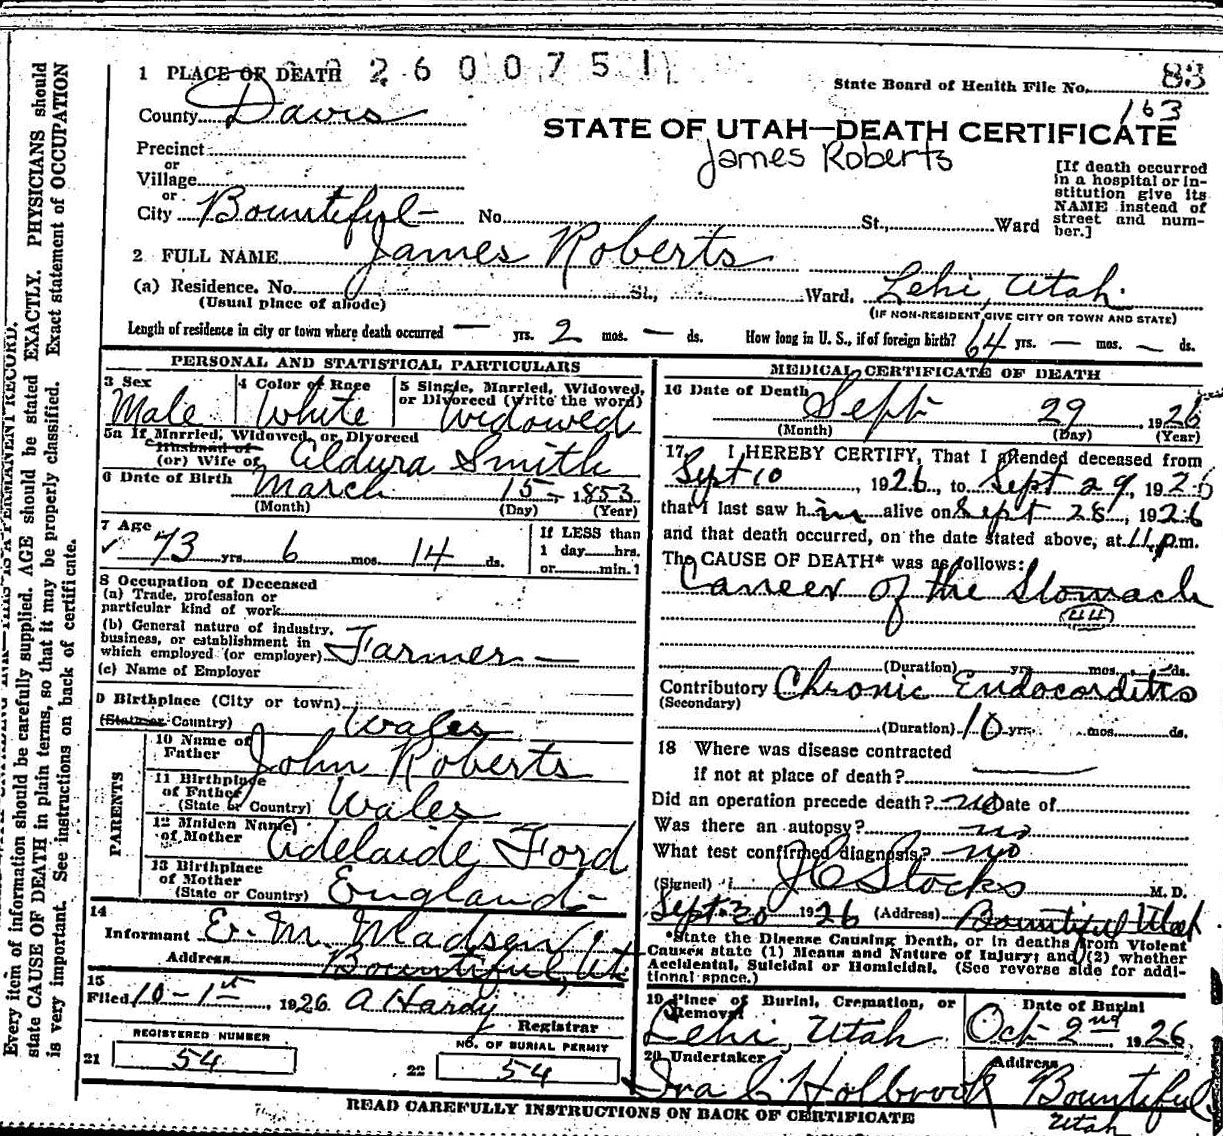 1 PLACE OF DEATH 2600751
State Board of Health File No. 83
County Davis
163
STATE OF UTAH—DEATH CERTIFICATE
James Roberts
Precinct
or
Village
or
City Bountiful No. St., Ward
[If death occurred in a hospital or institution give its NAME instead of street and number.]
2 FULL NAME James Roberts
(a) Residence. No. St., Ward. Lehi, Utah.
(Usual place of abode) (IF NON-RESIDENT GIVE CITY OR TOWN AND STATE)
Length of residence in city or town where death occurred — yrs. 2 mos. — ds. How long in U. S., if of foreign birth? 64 yrs. — mos. — ds.
PERSONAL AND STATISTICAL PARTICULARS
3 Sex
Male
4 Color of Race
White
5 Single, Married, Widowed,
or Divorced (write the word)
Widowed
5a If Married, Widowed, or Divorced
Husband of
(or) Wife of Eldura Smith
6 Date of Birth March 15, 1853
(Month) (Day) (Year)
7 Age
73 yrs. 6 mos. 14 ds.
If LESS than
1 day hrs.
or min.
8 Occupation of Deceased
(a) Trade, profession or
particular kind of work
(b) General nature of industry,
business, or establishment in
which employed (or employer) Farmer —
(c) Name of Employer
9 Birthplace (City or town)
(State or Country) Wales
PARENTS
10 Name of
Father John Roberts
11 Birthplace
of Father
(State or Country) Wales
12 Maiden Name
of Mother Adelaide Ford
13 Birthplace
of Mother
(State or Country) England
14
Informant E. M. Madsen
Address Bountiful, Ut.
15
Filed 10-1st 1926. A Hardy
Registrar
REGISTERED NUMBER
21 54
NO. OF BURIAL PERMIT
22 54
MEDICAL CERTIFICATE OF DEATH
16 Date of Death Sept 29 1926
(Month) (Day) (Year)
17 I HEREBY CERTIFY, That I attended deceased from
Sept 10, 1926, to Sept 29, 1926
that I last saw him alive on Sept 28, 1926
and that death occurred, on the date stated above, at 11 p.m.
The CAUSE OF DEATH* was as follows:
Cancer of the Stomach
(44)
(Duration) yrs. mos. ds.
Contributory Chronic Endocarditis
(Secondary)
(Duration) 10 yrs. mos. ds.
18 Where was disease contracted
if not at place of death?
Did an operation precede death? no Date of
Was there an autopsy? no
What test confirmed diagnosis? no
(Signed) J C Stocks M. D.
Sept. 30 1926 (Address) Bountiful Utah
*State the Disease Causing Death, or in deaths from Violent
Causes state (1) Means and Nature of Injury; and (2) whether
Accidental, Suicidal or Homicidal. (See reverse side for addi-
tional space.)
19 Place of Burial, Cremation, or
Removal
Lehi, Utah
Date of Burial
Oct 2nd 1926.
20 Undertaker
Ira C Holbrook
Address
Bountiful
Utah
READ CAREFULLY INSTRUCTIONS ON BACK OF CERTIFICATE
Every item of information should be carefully supplied. AGE should be stated EXACTLY. PHYSICIANS should
state CAUSE OF DEATH in plain terms, so that it may be properly classified. Exact statement of OCCUPATION
is very important. See instructions on back of certificate.